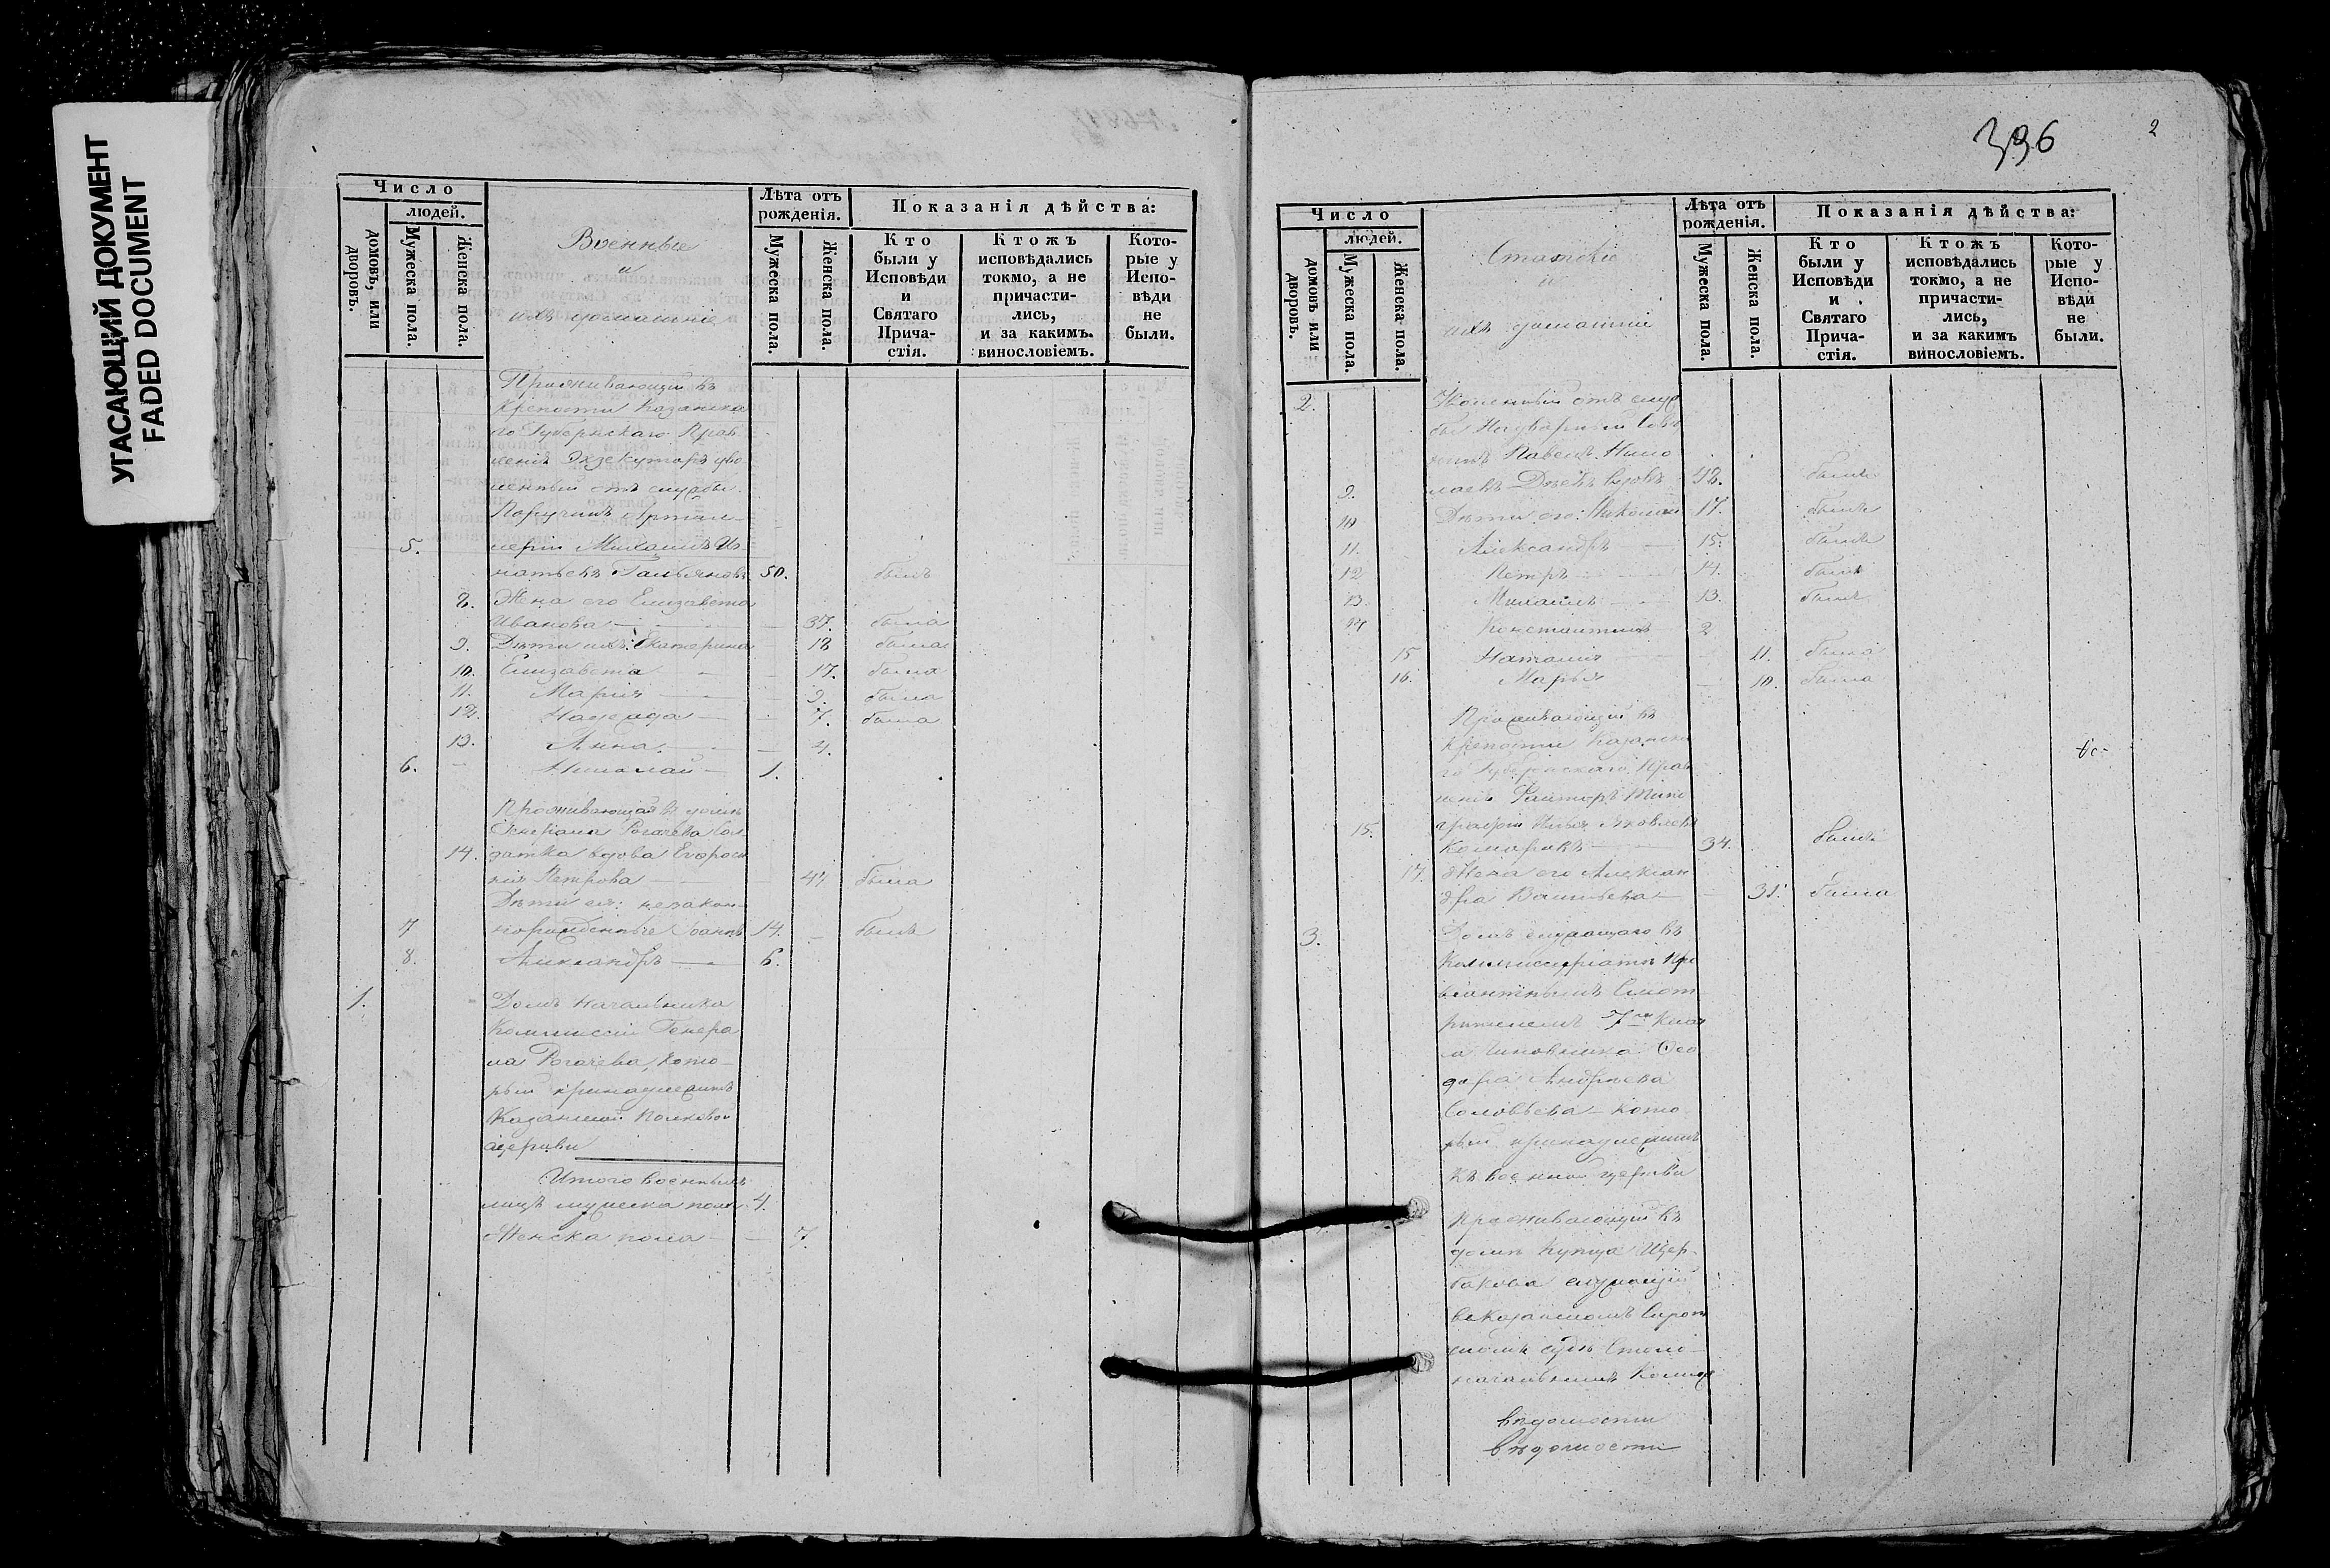 УГАСАЮЩИЙ ДОКУМЕНТ
FADED DOCUMENT
Число
людей.
домовъ, или дворовъ.
Мужеска пола.
Женска пола.
Военные
и
ихъ домашніе
Лѣта отъ рожденія.
Мужеска пола.
Женска пола.
Показанія дѣйства:
Кто были у Исповѣди и Святаго Причастія.
Ктожъ исповѣдались токмо, а не причастились, и за какимъ. винословіемъ.
Которые у Исповѣди не были.
Проживающій въ
Крепости Казанска
го Губернскаго Прав
ленія Экзекуторъ уво
ленный отъ службы
Поручикъ Артил-
5. леріи Михаилъ Иг
натьевъ 50. былъ
8. Жена его Елизавета
Иванова 37. была
9. Дѣти ихъ: Екатерина 18 была
10. Елизавета 17. была
11. Марія 9. была
12. Надежда 7. была
13. Анна 4.
6. Николай 1.
Проживающая въ домѣ
Генерала Рогачева Сол
14. датка вдова Евфроси
нія Петрова 44 была
Дѣти ея: незакон-
7 норожденные Іоаннъ 14. былъ
8. Александръ 6.
1. Домъ Начальника
Коммиссіи Генера
ла Рогачева, кото-
рый принадлежитъ
Казанской Полковой
церкви
Итого военныхъ
лицъ мужеска пола 4.
Женска пола 7.
396
2
Число
людей.
домовъ или дворовъ.
Мужеска пола.
Женска пола.
Статскіе
и
ихъ домашніе
Лѣта отъ рожденія.
Мужеска пола.
Женска пола.
Показанія дѣйства:
Кто были у Исповѣди и Святаго Причастія.
Ктожъ исповѣдались токмо, а не причастились, и за какимъ винословіемъ.
Которые у Исповѣди не были.
2. Уволенный отъ служ
бы Надворный Совѣт
никъ Павелъ Нико
9. лаевъ вдовъ 42. былъ
10 Дѣти его: Николай 17. былъ
11. Александръ 15. былъ
12 Петръ 14. былъ
13. Михаилъ 13. былъ
14 Константинъ 2
15 Наталія 11. была
16. Марья 10. была
Проживающій въ
крепости Казанска
го Губернскаго Прав
ленія Типо
15. графіи Яковлевъ
Комаровъ 34. былъ
17. Жена его Алексан
дра Васильева 31. была
3. Домъ служащаго въ
Коммиссаріатѣ Про
віантнымъ Смот
рителемъ 7го Клас
са Чиновника Ѳео
дора Андреева
Соловьева кото
рый принадлежитъ
къ военной церкви
Проживающій въ
домѣ купца Щер-
бакова служащій
въ Казанскомъ Сирот
скомъ судѣ Столо-
начальникъ
вѣдомости
вѣдомости